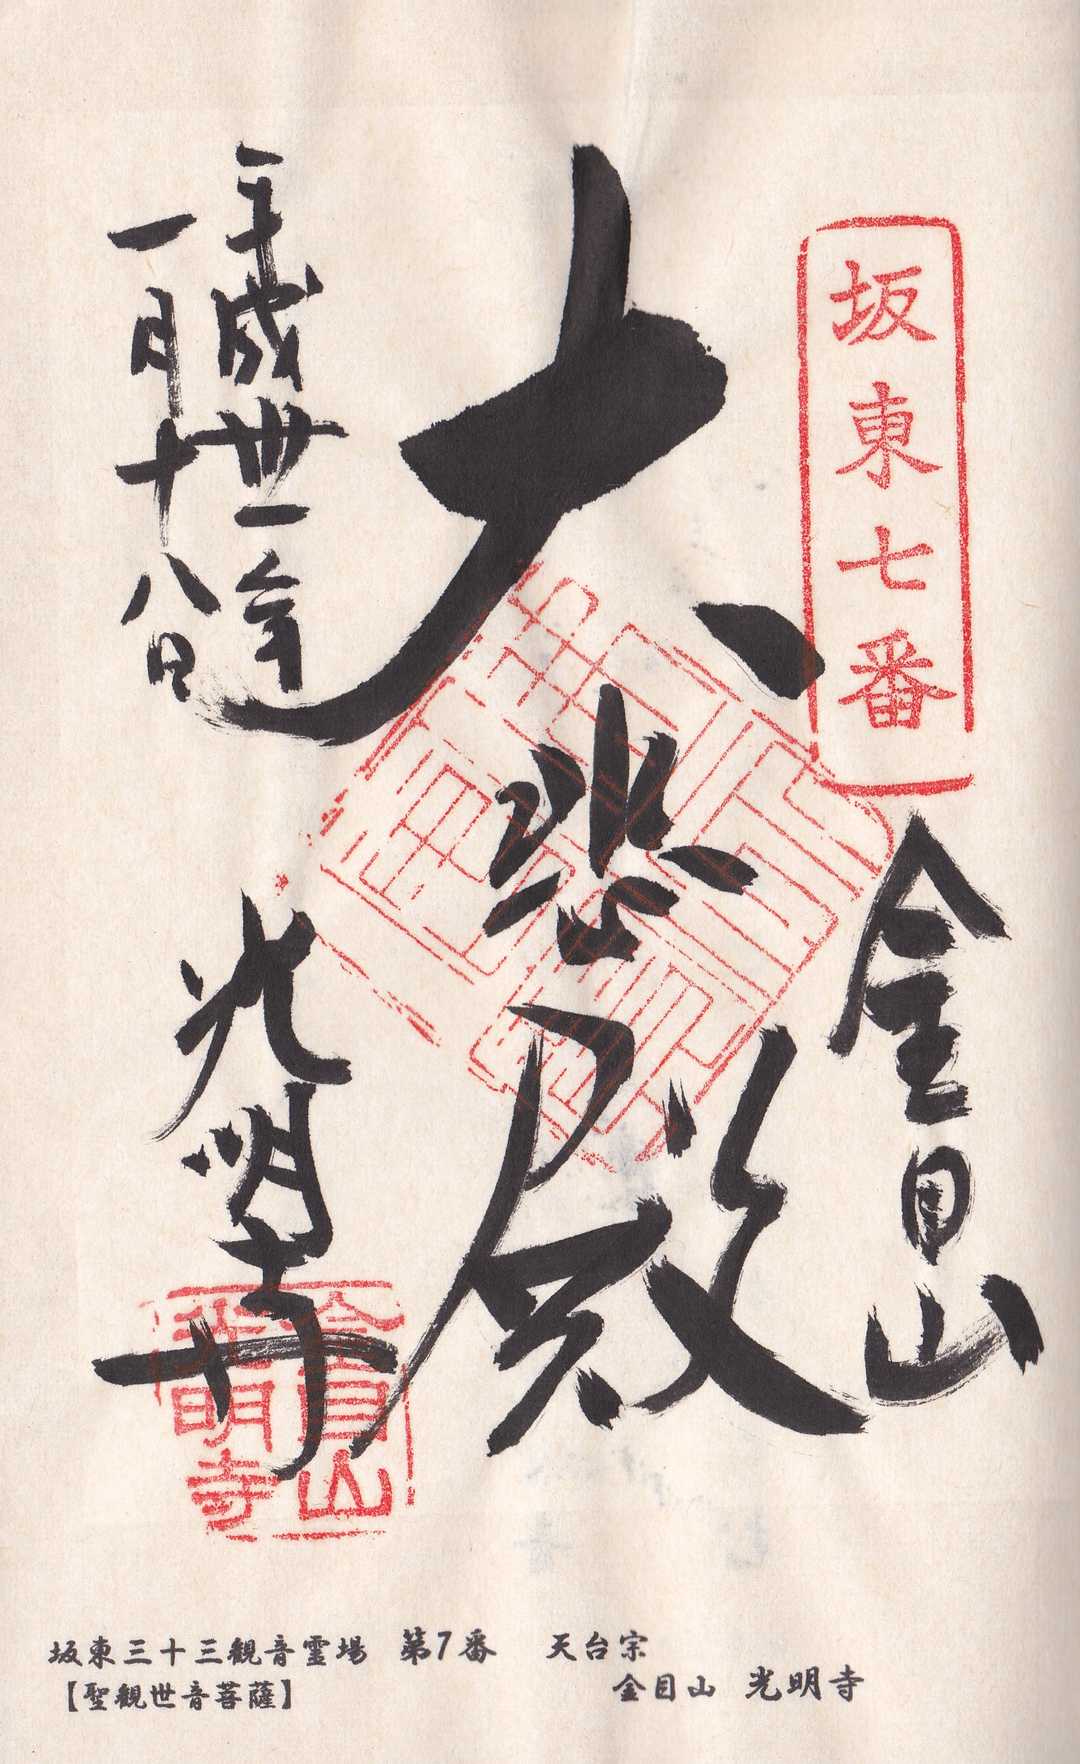 坂東七番
金目山
大悲殿
平成丗一年
一月十八日
光明寺
金目山
光明寺
坂東三十三観音霊場 第7番 天台宗
【聖観世音菩薩】 金目山 光明寺